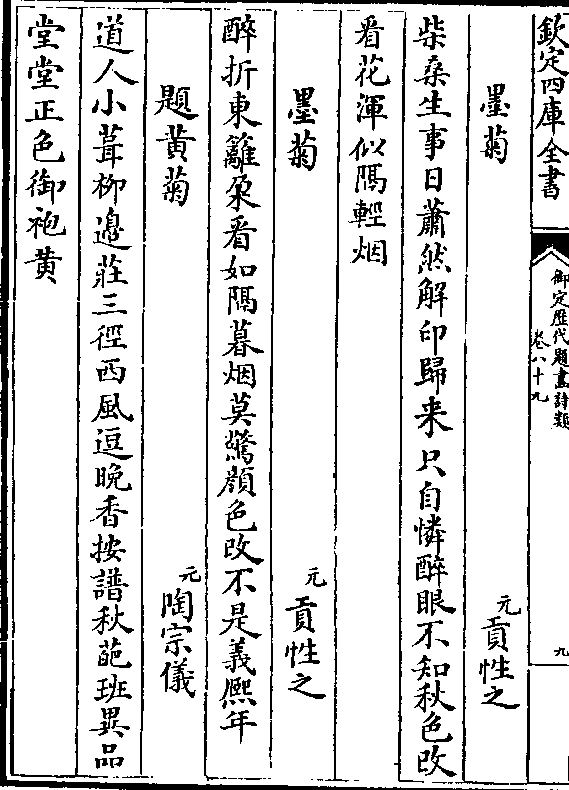 欽定四庫全書
御定歷代題畫詩類
卷八十九
九
墨菊
元
貢性之
柴桑生事日蕭然解印歸来只自憐醉眼不知秋色改
看花渾似隔輕烟
墨菊
元
貢性之
醉折東籬朶看如隔暮烟莫驚顔色改不是義熙年
題黄菊
元
陶宗儀
道人小葺栁邉莊三徑西風逗晚香按譜秋葩班異品
堂堂正色御袍黄